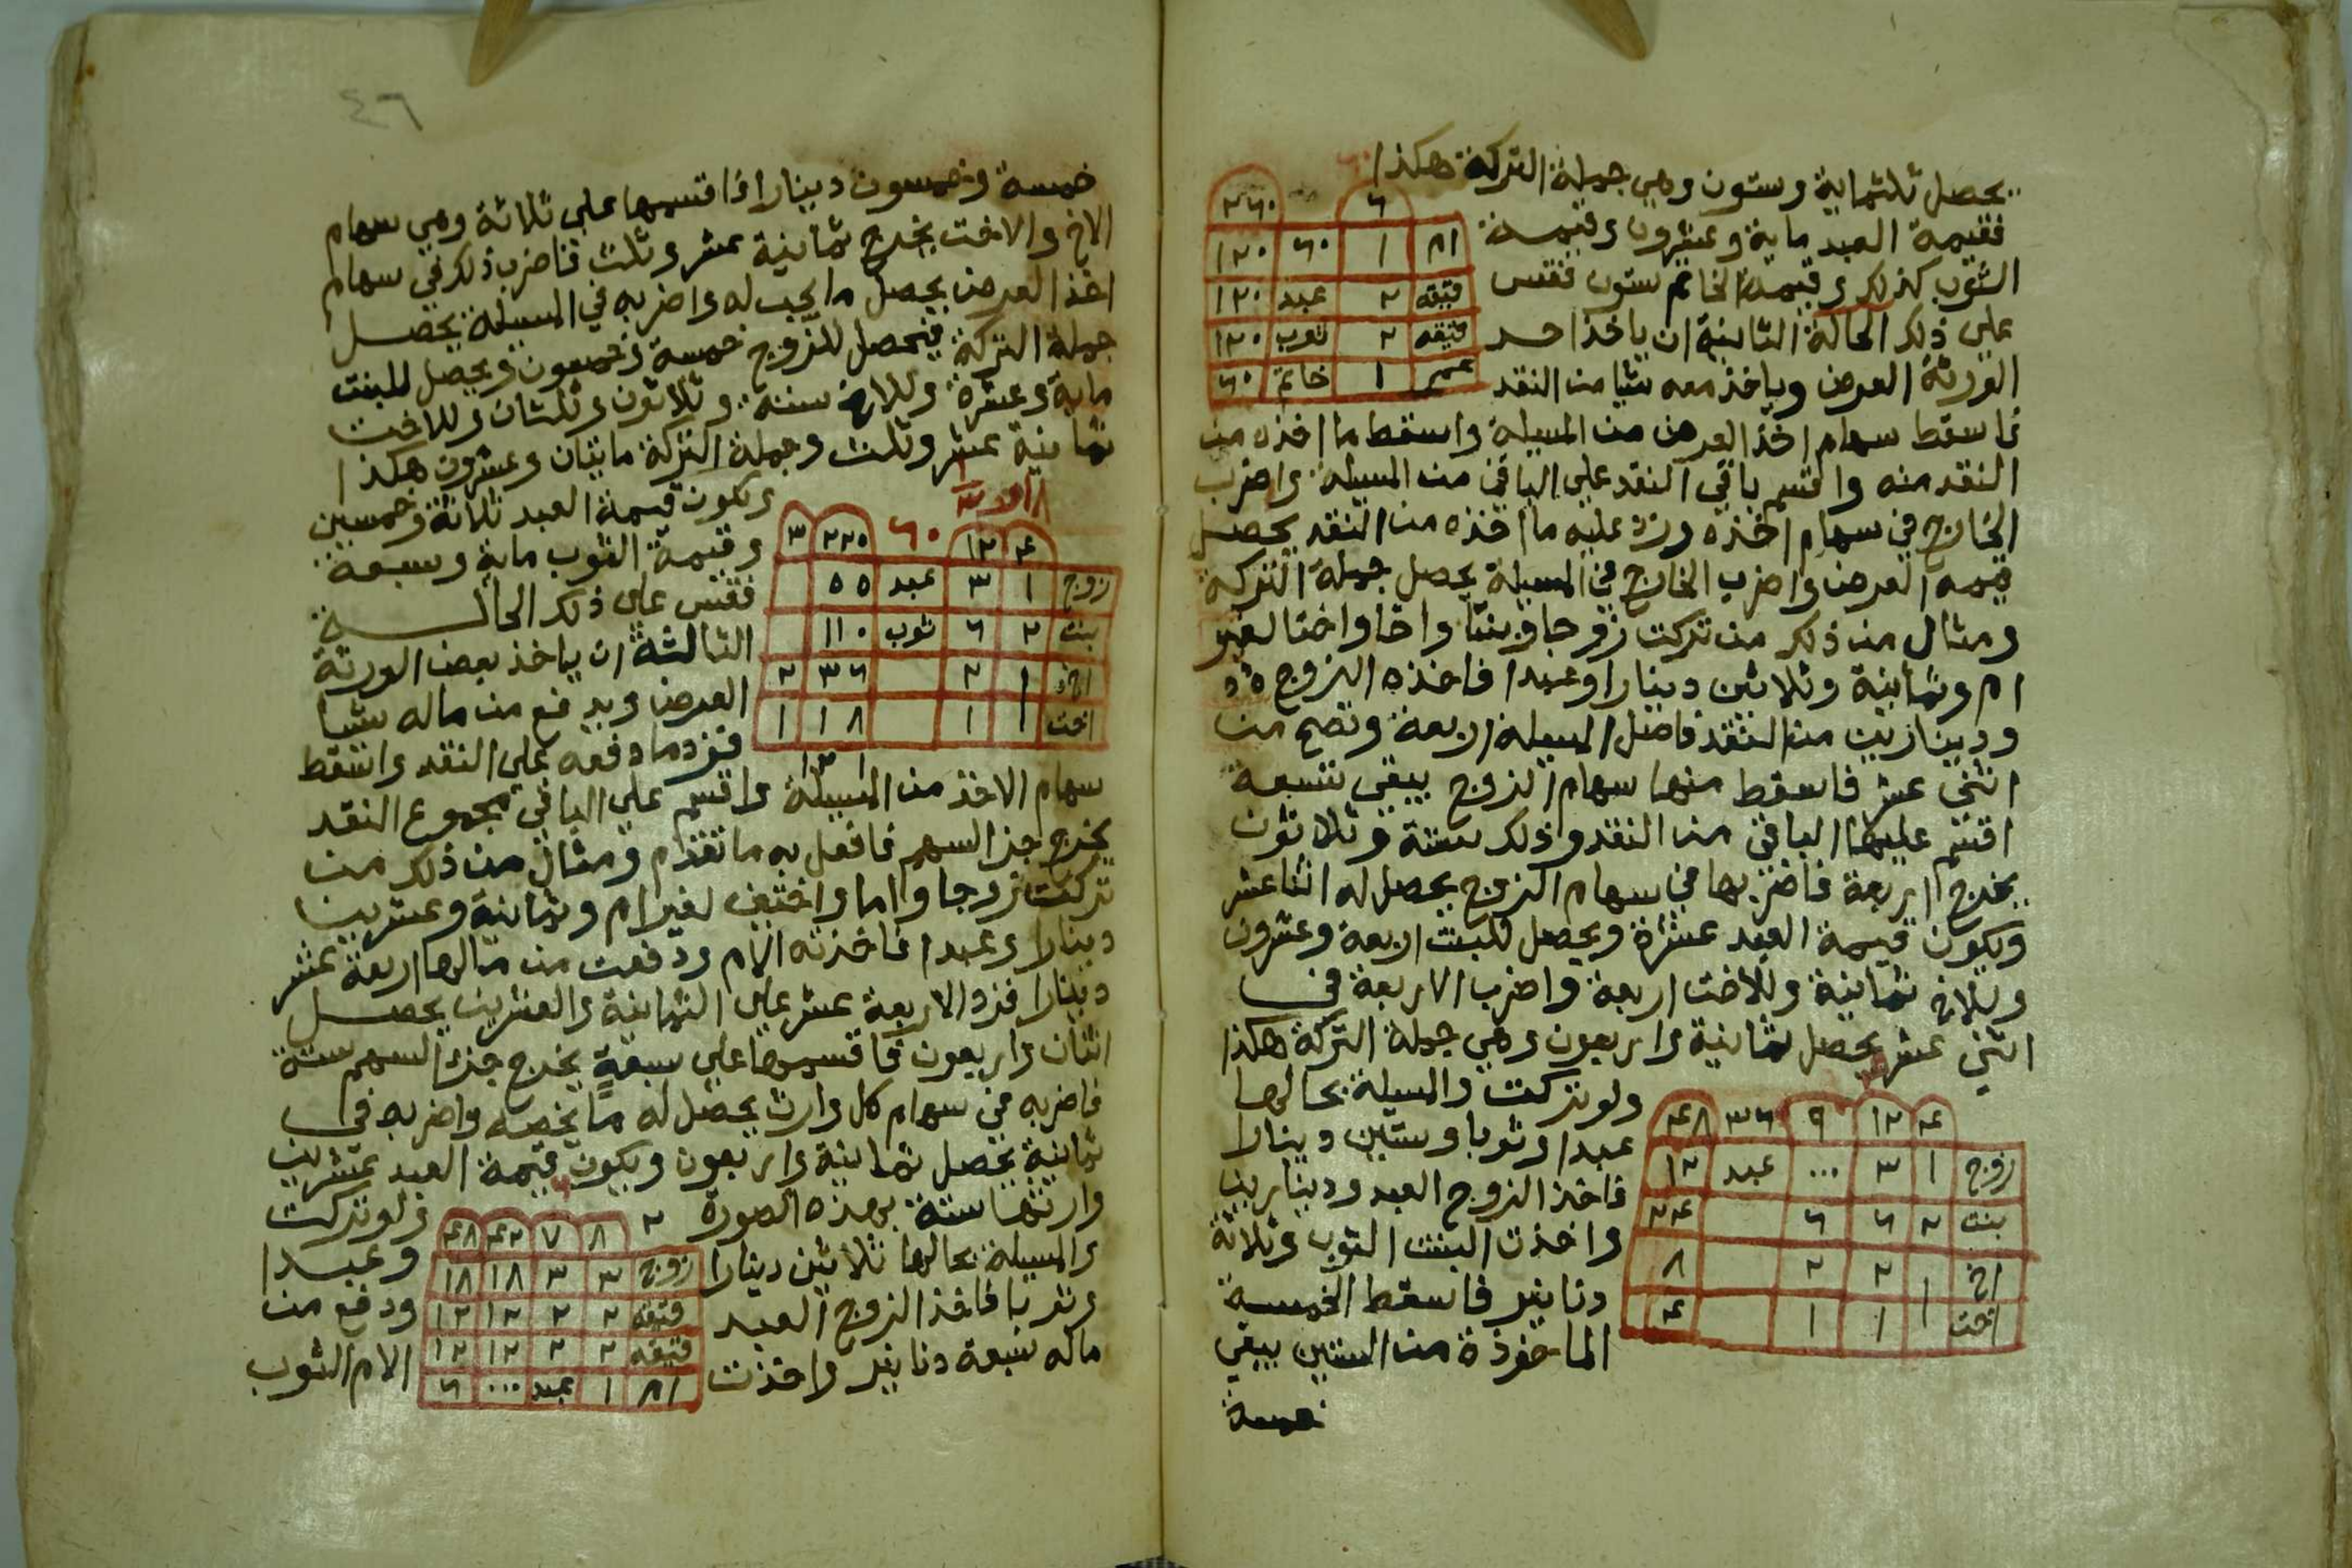 يحصل ثلثماية وستون وهي جملة التركة هكذا
٣٦٠ ٦
فقيمة العبد ماية وعشرون وقيمة
ام ١ ٦٠ ١٢٠
الثوب كذلك وقيمة الخاتم ستون فقس
شقيقه ٢ عبد ١٢٠
على ذلك الحالة الثانية ان ياخذ احد
شقيقه ٢ ثوب ١٢٠
الورثة العرض وياخذ معه شيا من النقد
عم ١ خاتم ٦٠
فاسقط سهام اخذ العرض من المسيلة واسقط ما اخذه من
النقد منه واقسم باقي النقد على الباقي من المسيلة واضرب
الخارج في سهام اخذه وزد عليه ما اخذه من النقد يحصل
قيمه العرض واضرب الخارج في المسيلة يحصل جملة التركة
ومثال من ذلك من تركت زوجا وبنتا واخا واختا لغير
ام وثمانية وثلاثين دينارا وعبدا فاخذه الزوج
ودينارين من النقد فاصل المسيلة اربعة وتصح من
اثني عشر فاسقط منها سهام الزوج يبقى تسعة
اقسم عليها الباقي من النقد وذلك ستة وثلاثون
يخرج اربعة فاضربها في سهام الزوج يحصل له اثنا عشر
ويكون قيمة العبد عشرة ويحصل للبنت اربعة وعشرون
وللاخ ثمانية وللاخت اربعة واضرب الاربعة في
اثني عشر يحصل ثمانية واربعون وهي جملة التركة هكذا
٤ ١٢ ٩ ٣٦ ٤٨
زوج ١ ٣ ... عبد ١٢
بنت ٢ ٦ ٦ ٢٤
اخ ١ ٢ ٢ ٨
اخت ١ ١ ٤
ولو تركت والمسيلة بحالها
عبدا وثوبا وستين دينارا
فاخذ الزوج العبد ودينارين
واخذت البنت الثوب وثلاثة
دنانير فاسقط الخمسة
الماخوذة من الستين يبقى
خمسة
٤٦
خمسة وخمسون دينارا فاقسمها على ثلاثة وهي سهام
الاخ والاخت يخرج ثمانية عشر وثلث فاضرب ذلك في سهام
اخذ العرض يحصل ما يجب له واضربه في المسيلة يحصل
جملة التركة فيحصل للزوج خمسة وخمسون ويحصل للبنت
ماية وعشرة وللاخ ستة وثلاثون وثلثان وللاخت
ثمانية عشر وثلث وجملة التركة مايتان وعشرون هكذا
٤ ١٢ ٦٠ ٢٢٠ ٣
زوج ١ ٣ عبد ٥٥
بنت ٢ ٦ ثوب ١١٠
اخ ١ ٢ ٣٦ ٢
اخت ١ ١٨ ١
ويكون قيمة العبد ثلاثة وخمسين
وقيمة الثوب ماية وسبعة
فقس على ذلك الحالة
الثالثة ان ياخذ بعض الورثة
العرض ويدفع من ماله شيا
فزد ما دفعه على النقد واسقط
سهام الاخذ من المسيلة واقسم على الباقي مجموع النقد
يخرج جز السهم فافعل به ما تقدم ومثال من ذلك من
تركت زوجا واما واختين لغير ام وثمانية وعشرين
دينارا وعبدا فاخذته الام ودفعت من مالها اربعة عشر
دينارا فزد الاربعة عشر على الثمانية والعشرين يحصل
اثنان واربعون فاقسمها على سبعة يخرج جز السهم ستة
فاضربه في سهام كل وارث يحصل له ما يخصه واضربه في
ثمانية يحصل ثمانية واربعون ويكون قيمة العبد عشرين
وارثها ستة بهذه الصورة
٨ ٧ ٤٢ ٤٨
زوج ٣ ٣ ١٨ ١٨
شقيقه ٢ ٢ ١٢ ١٢
شقيقه ٢ ٢ ١٢ ١٢
ام ١ عبد ... ٦
ولو تركت
والمسيلة بحالها ثلاثين دينارا وعبدا
وثوبا فاخذ الزوج العبد ودفع من
ماله سبعة دنانير واخذت الام الثوب